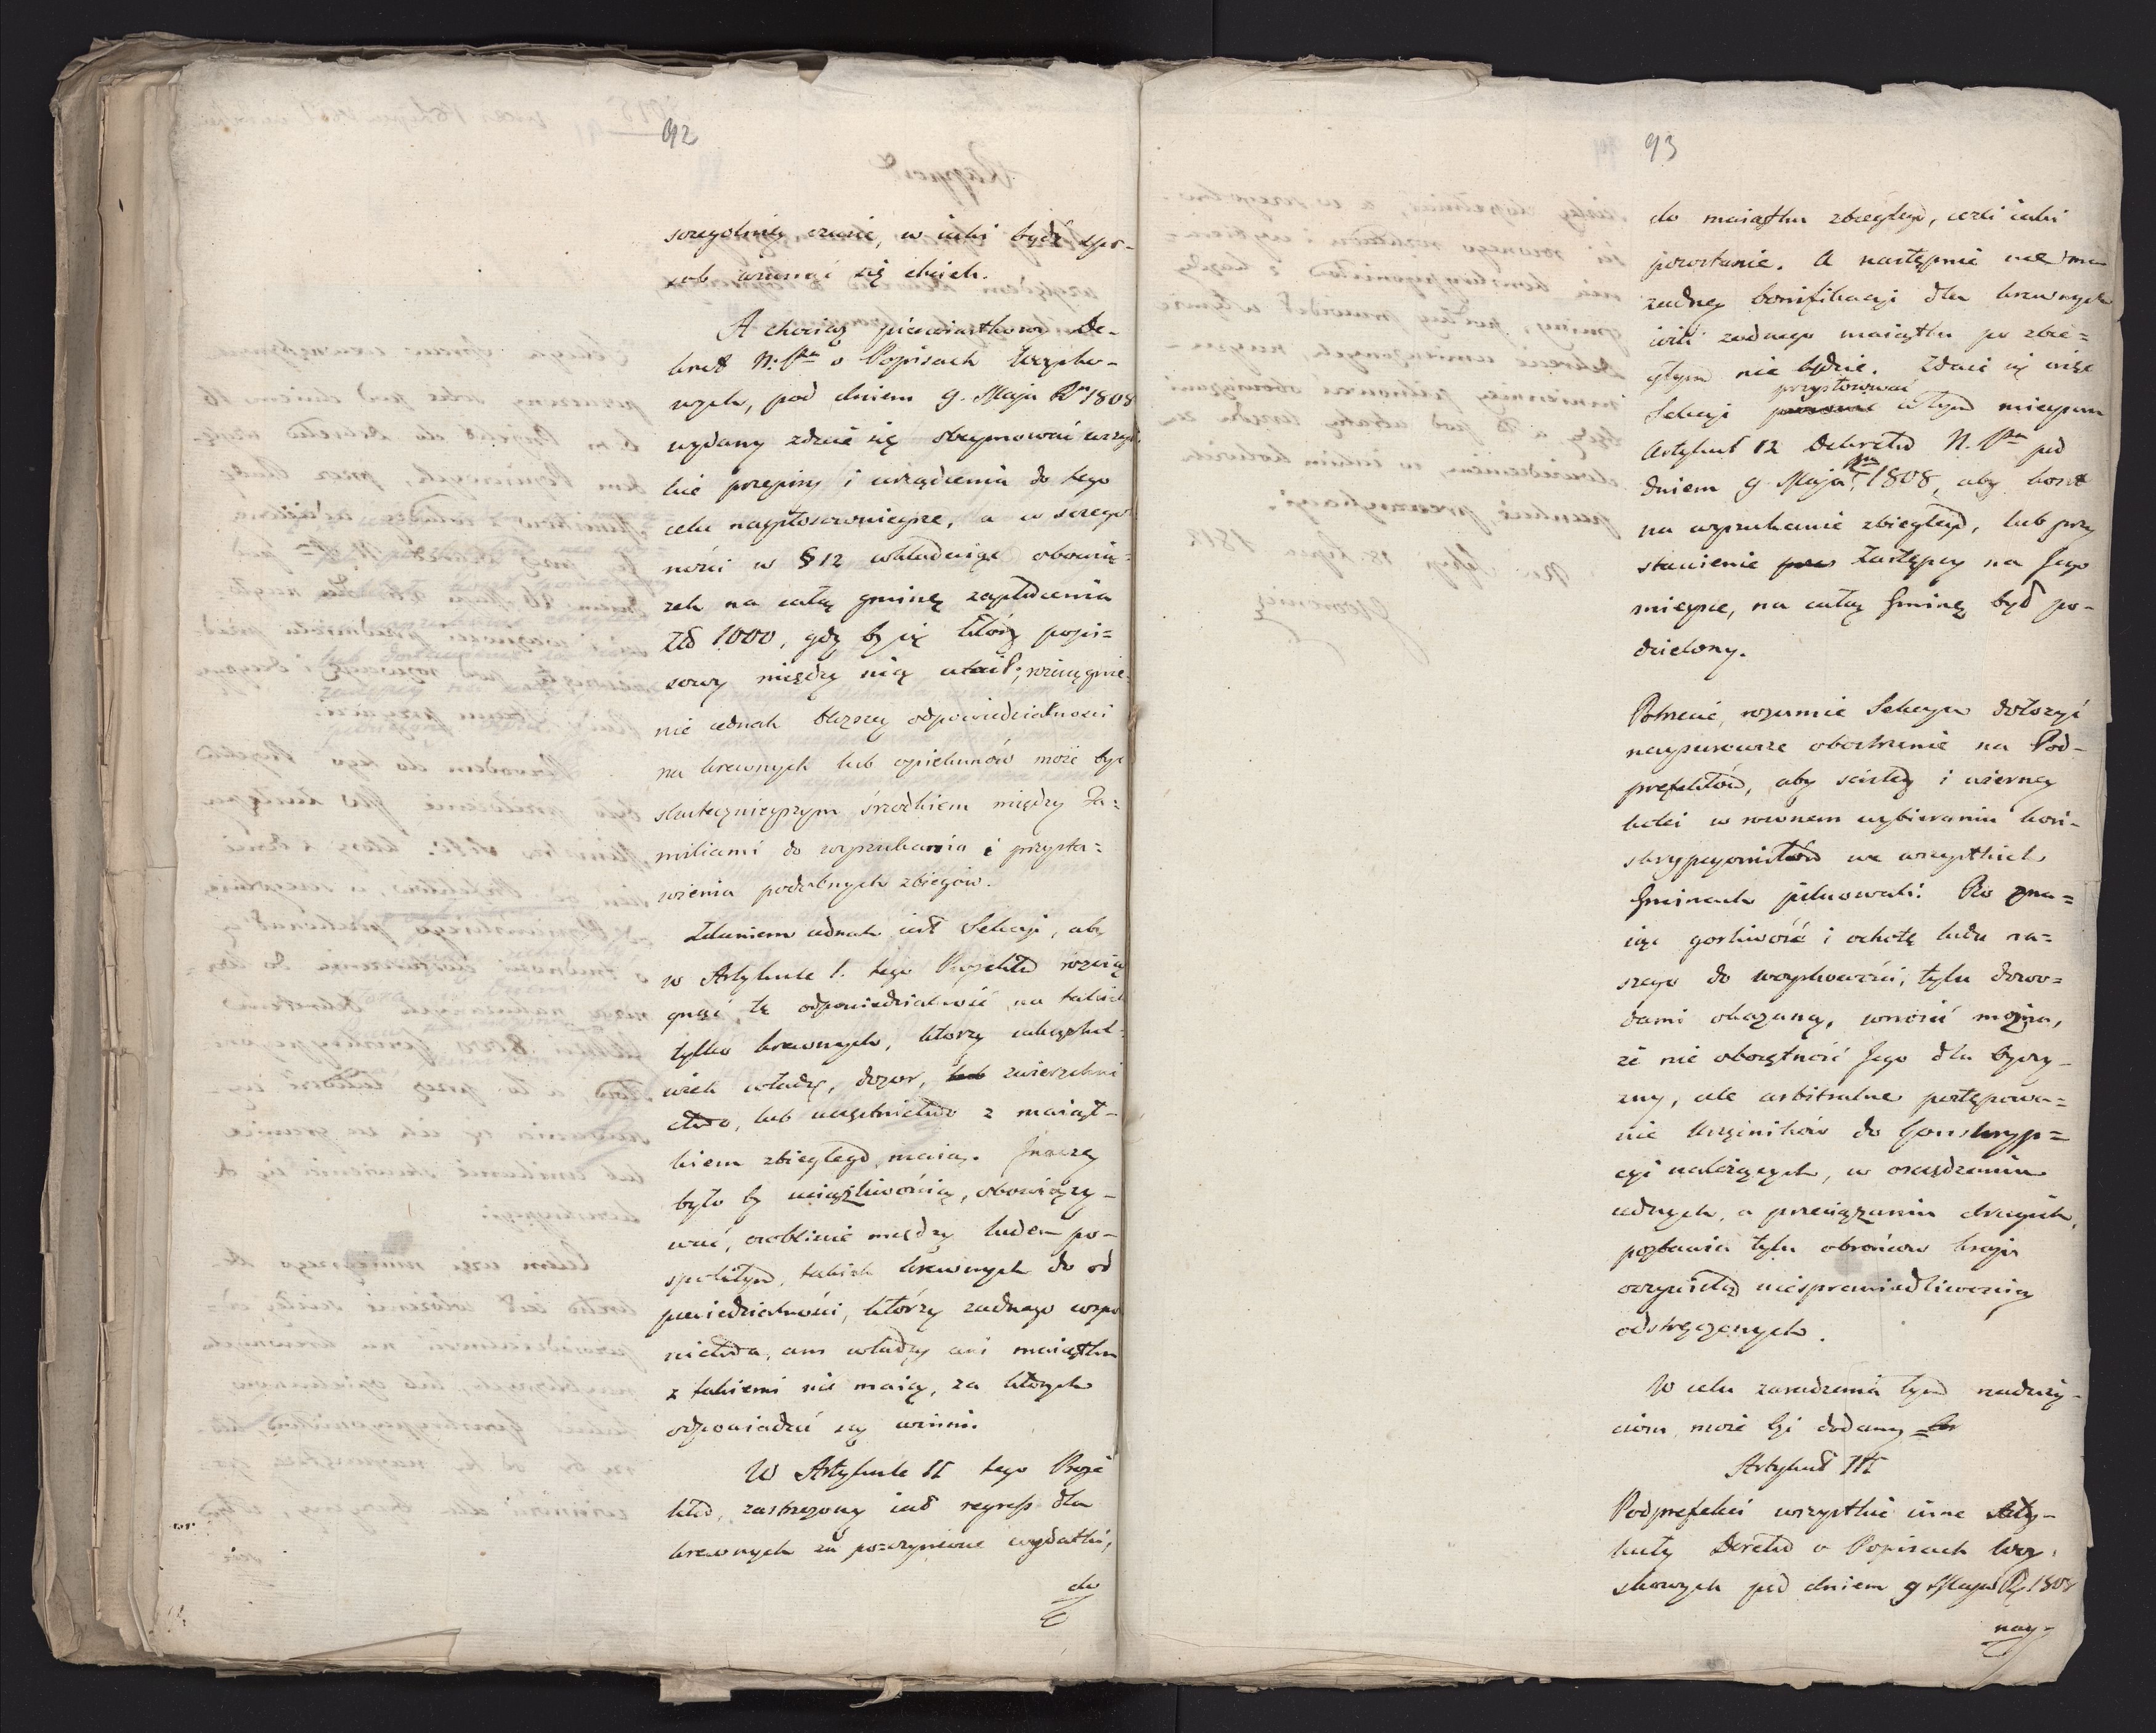 92
szczególniey czasie, w iaki bydź spo-
sob usunąć się chcieli.
A chociaż pierwiastkowy De-
kret N. Pa o Popisach Woysko-
wych, pod dniem 9. Maja Rs 1808
wydany zdaie się obeymować wszyst-
kie przepisy i urządzenia do tego
celu naystosownieysze, a w szczegól
ności w § 12 wkładaiąc obowią-
zek na całą gminę zapłacenia
Złł 1000, gdy by się który popi=
sowy między nią utaił; rozciągnie-
nie iednak bliższey odpowiedzialności
na krewnych lub opiekunów może być
skutecznieyszym środkiem między Fa=
miliami do wyszukania i przysta=
wienia podobnych zbiegów.
Zdaniem iednak iest Sekcyi, aby
w Artykule 1. tego Projektu rozcią
gnąć tę odpowiedzialność na takich
tylko krewnych, którzy iakążkol-
wiek władzę, dozor, lub zwierzchni
ctwo, lub uczęstnictwo z maiąt-
kiem zbiegłego maią. Inaczey
było by uciążliwością, obowiązy-
wać, osobliwie między ludem po-
spolitym, takich krewnych do od
powiedzialności, którzy żadnego wspól
nictwa, ani władzy ani maiątku
z takiemi nie maią, za których
odpowiadać są winni.
W Artykule II tego Proje
ktu, zastrzeżony iest regress dla
krewnych za poczynione wydatki,
do
93
do maiątku zbiegłego, ieżli iaki
pozostanie. A następnie nie ma
żadney bonifikacyi dla krewnych
ieżli żadnego maiątku po zbie=
głym nie będzie. Zdaie się więc
Sekcyi przystosować w tym mieyscu
Artykuł 12 Dekretu N. Pa pod
dniem 9. Maja Rs 1808, aby koszt
na wyszukanie zbiegłego, lub przy
stawienie Zastępcy na Jego
mieysce, na całą Gminę był po-
dzielony.
Potrzecie, rozumie Sekcya dołożyć
naysurowsze obostrzenie na Pod-
prefektów, aby scisłey i wierney
kolei w rownem wybieraniu kon-
skrypcyonistów we wszystkich
Gminach pilnowali: Bo zna=
iąc gorliwość i ochotę ludu na=
szego do woyskowości, tylu dowo=
dami okazaną, wnosić można,
że nie oboiętność Jego dla Oyczy-
zny, ale arbitralne postępowa=
nie Urzędników do Conskryp=
cyi należących, w oszczędzaniu
iednych, a przeciążaniu drugich,
pozbawia tylu obrońców kraju
oczywistą niesprawiedliwością
odstręczonych.
W celu zaradzenia tym naduży-
ciom może być dodany
Artykuł III
Podprefekci wszystkie inne Arty-
kuły Dekretu o Popisach Woy-
skowych pod dniem 9 Maja Rs 1808
nay-